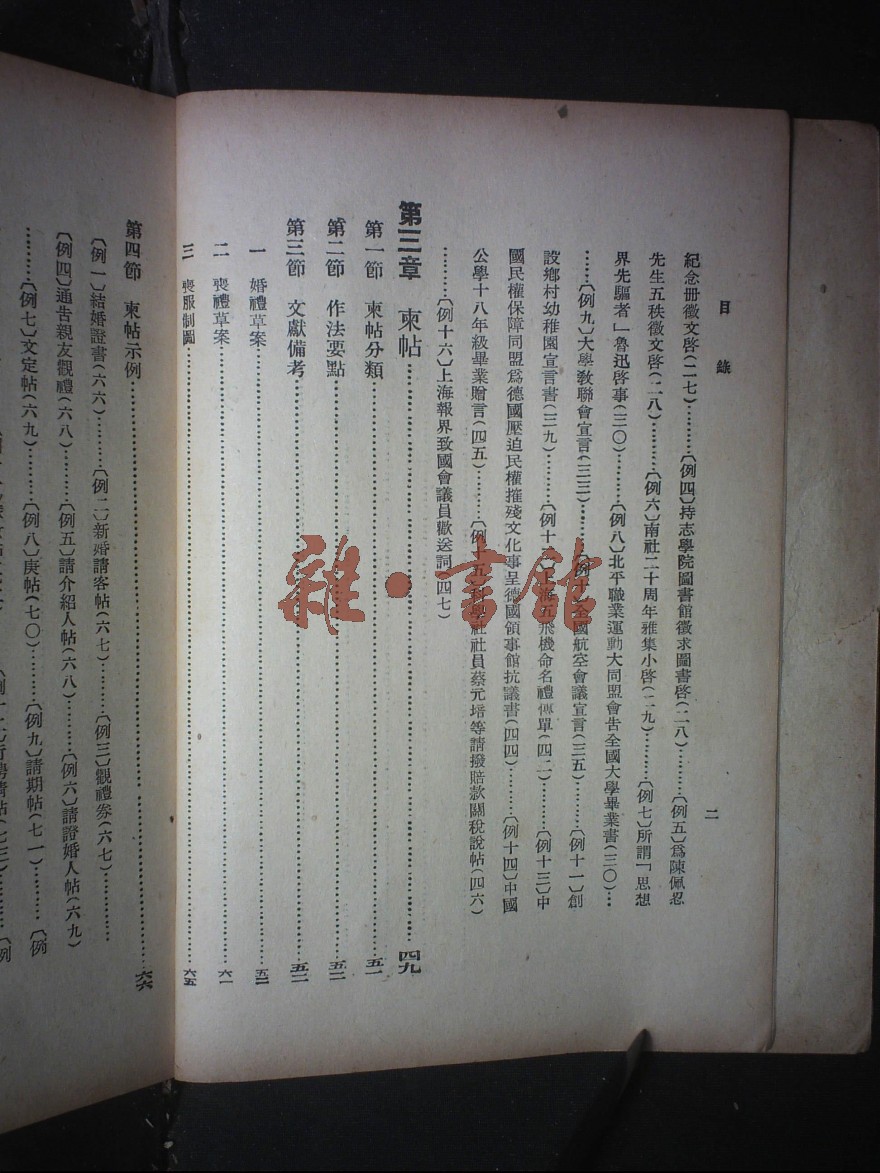 目錄
二
紀念册徵文啓(二七)………〔例四〕持志學院圖書館徵求圖書啓(二八)………〔例五〕爲陳佩忍
先生五秩徵文啓(二八)………〔例六〕南社二十周年雅集小啓(二九)………〔例七〕所謂「思想
界先驅者」魯迅啓事(三〇)………〔例八〕北平職業運動大同盟會告全國大學畢業書(三〇)…
……〔例九〕大學教聯會宣言(三三)………〔例十〕全國航空會議宣言(三五)………〔例十一〕創
設鄉村幼稚園宣言書(三九)………〔例十二〕上海五飛機命名禮傳單(四二)………〔例十三〕中
國民權保障同盟爲德國壓迫民權摧殘文化事呈德國領事館抗議書(四四)………〔例十四〕中國
公學十八年級畢業贈言(四五)………〔例十五〕科學社社員蔡元培等請撥賠款關稅說帖(四六)
………〔例十六〕上海報界致國會議員歡送詞(四七)
第三章 柬帖………四九
第一節 柬帖分類………五一
第二節 作法要點………五二
第三節 文獻備考………五二
一 婚禮草案………五二
二 喪禮草案………六一
三 喪服制圖………六五
第四節 柬帖示例………六六
〔例一〕結婚證書(六六)………〔例二〕新婚請客帖(六七)………〔例三〕觀禮券(六七)………
〔例四〕通告親友觀禮(六八)………〔例五〕請介紹人帖(六八)………〔例六〕請證婚人帖(六九)
………〔例七〕文定帖(六九)………〔例八〕庚帖(七〇)………〔例九〕請期帖(七一)………〔例
雜·書館